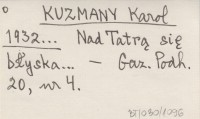 KUZMANY Karol
1932... Nad Tatrą się
błyska... – Gaz. Podh.
20, nr 4.